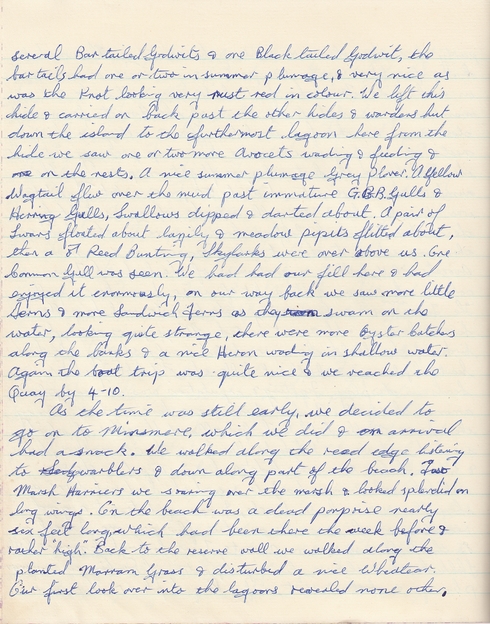 several Bar tailed Godwits & one Black tailed Godwit, the
bar tails had one or two in summer plumage, & very nice as
was the Knot looking very rust red in colour. We left this
hide & carried on back past the other hides & wardens hut
down the island to the furthermost lagoon here from the
hide we saw one or two more Avocets wading & feeding &
one on the nests. A nice summer plumage Grey Plover. A Yellow
Wagtail flew over the mud past immature G.B.B. Gulls &
Herring Gulls, Swallows dipped & darted about. A pair of
Swans floated about lazily & meadow pipits flitted about,
then a ♂ Reed Bunting, Skylarks were over above us. One
Common Gull was seen. We had had our fill here & had
enjoyed it enormously, on our way back we saw more little
Terns & more Sandwich Terns as they swam on the
water, looking quite strange, there were more Oyster catchers
along the banks & a nice Heron wading in shallow water.
Again the boat trip was quite nice & we reached the
Quay by 4-10.
As the time was still early, we decided to
go on to Minsmere, which we did & on arrival
had a snack. We walked along the road edge listening
to warblers & down along part of the beach. Two
Marsh Harriers we soaring over the marsh & looked splendid on
long wings. On the beach was a dead porpoise nearly
six feet long, which had been there the week before &
rather 'high'. Back to the reserve wall we walked along the
planted Marram Grass & disturbed a nice Wheatear.
Our first look over into the lagoons revealed none other,